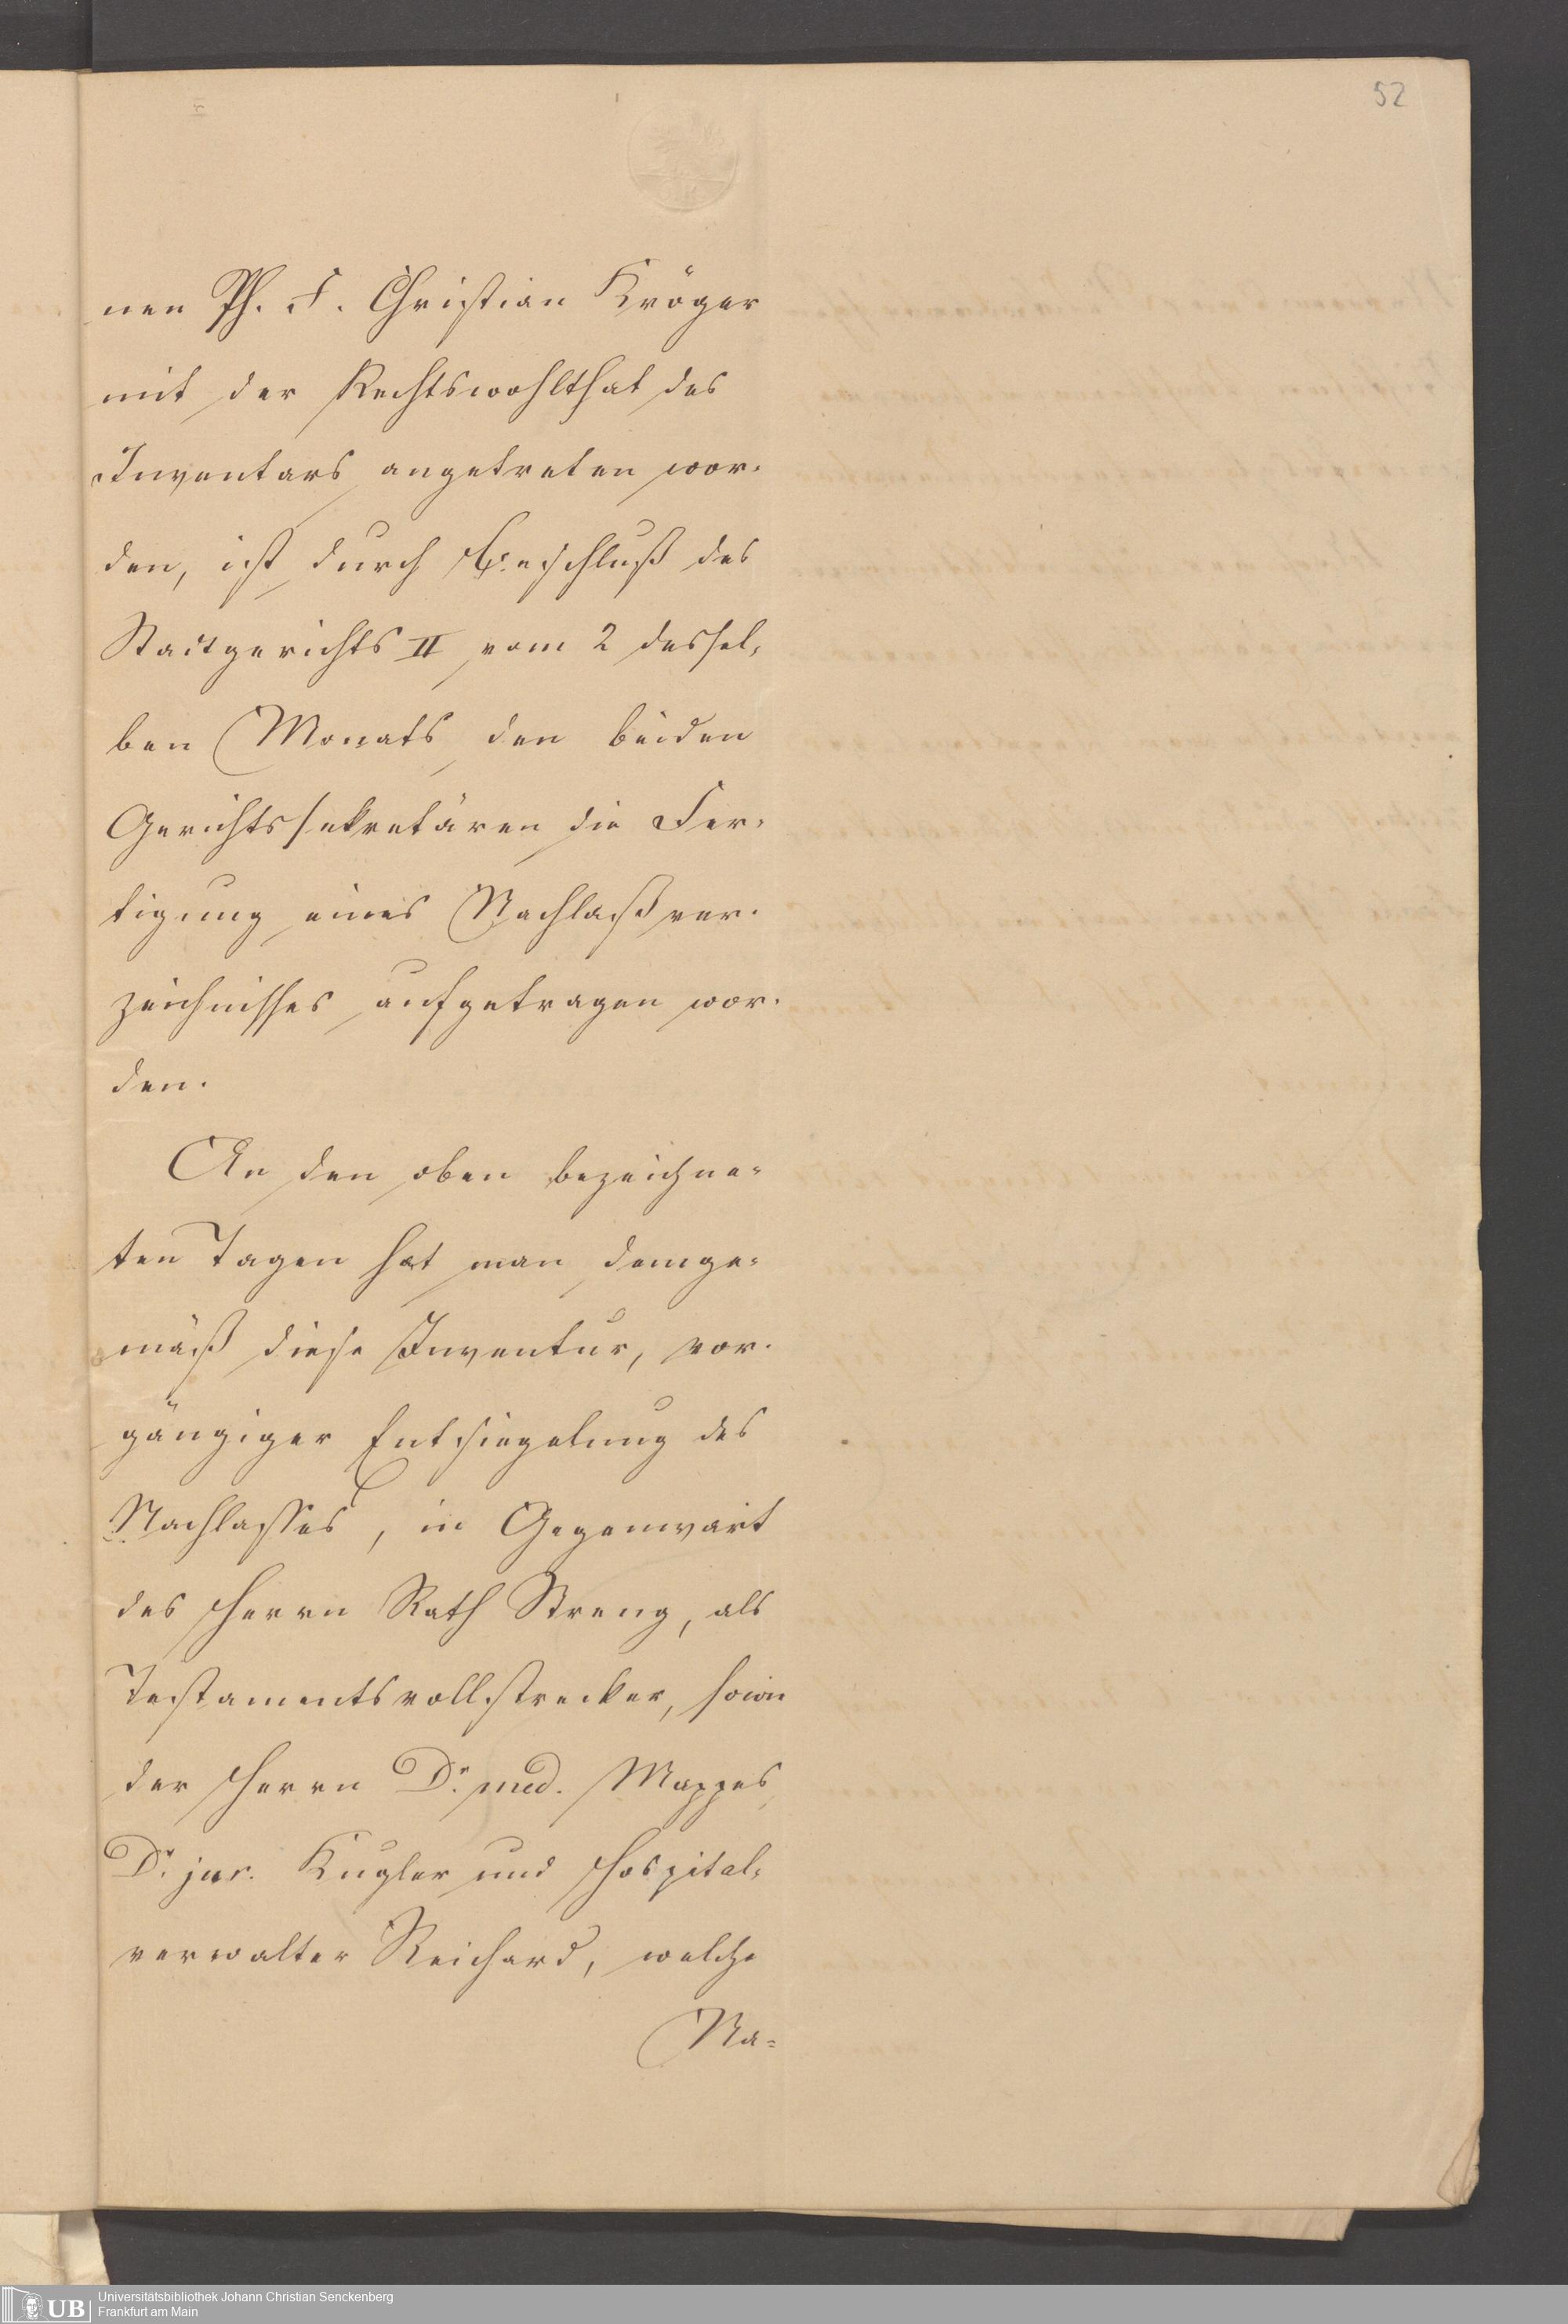 52
nen Ph. F. Christian Kröger
mit der Rechtswohlthat des
Inventars angetreten wor-
den, ist durch Beschluß des
Stadtgerichts II vom 2 dessel-
ben Monats den beiden
Gerichtssekretären die Fer-
tigung eines Nachlaßver-
zeichnisses aufgetragen wor-
den.
An den oben bezeichne-
ten Tagen hat man demge-
mäß diese Inventur, vor-
gängiger Entsiegelung des
Nachlasses, in Gegenwart
des Herrn Rath Streng, als
Testamentsvollstrecker, sowie
der Herrn Dr. med. Mappes,
Dr. jur. Kugler und Hospital-
verwalter Reichard, welche
Na=
UB
Universitätsbibliothek Johann Christian Senckenberg
Frankfurt am Main